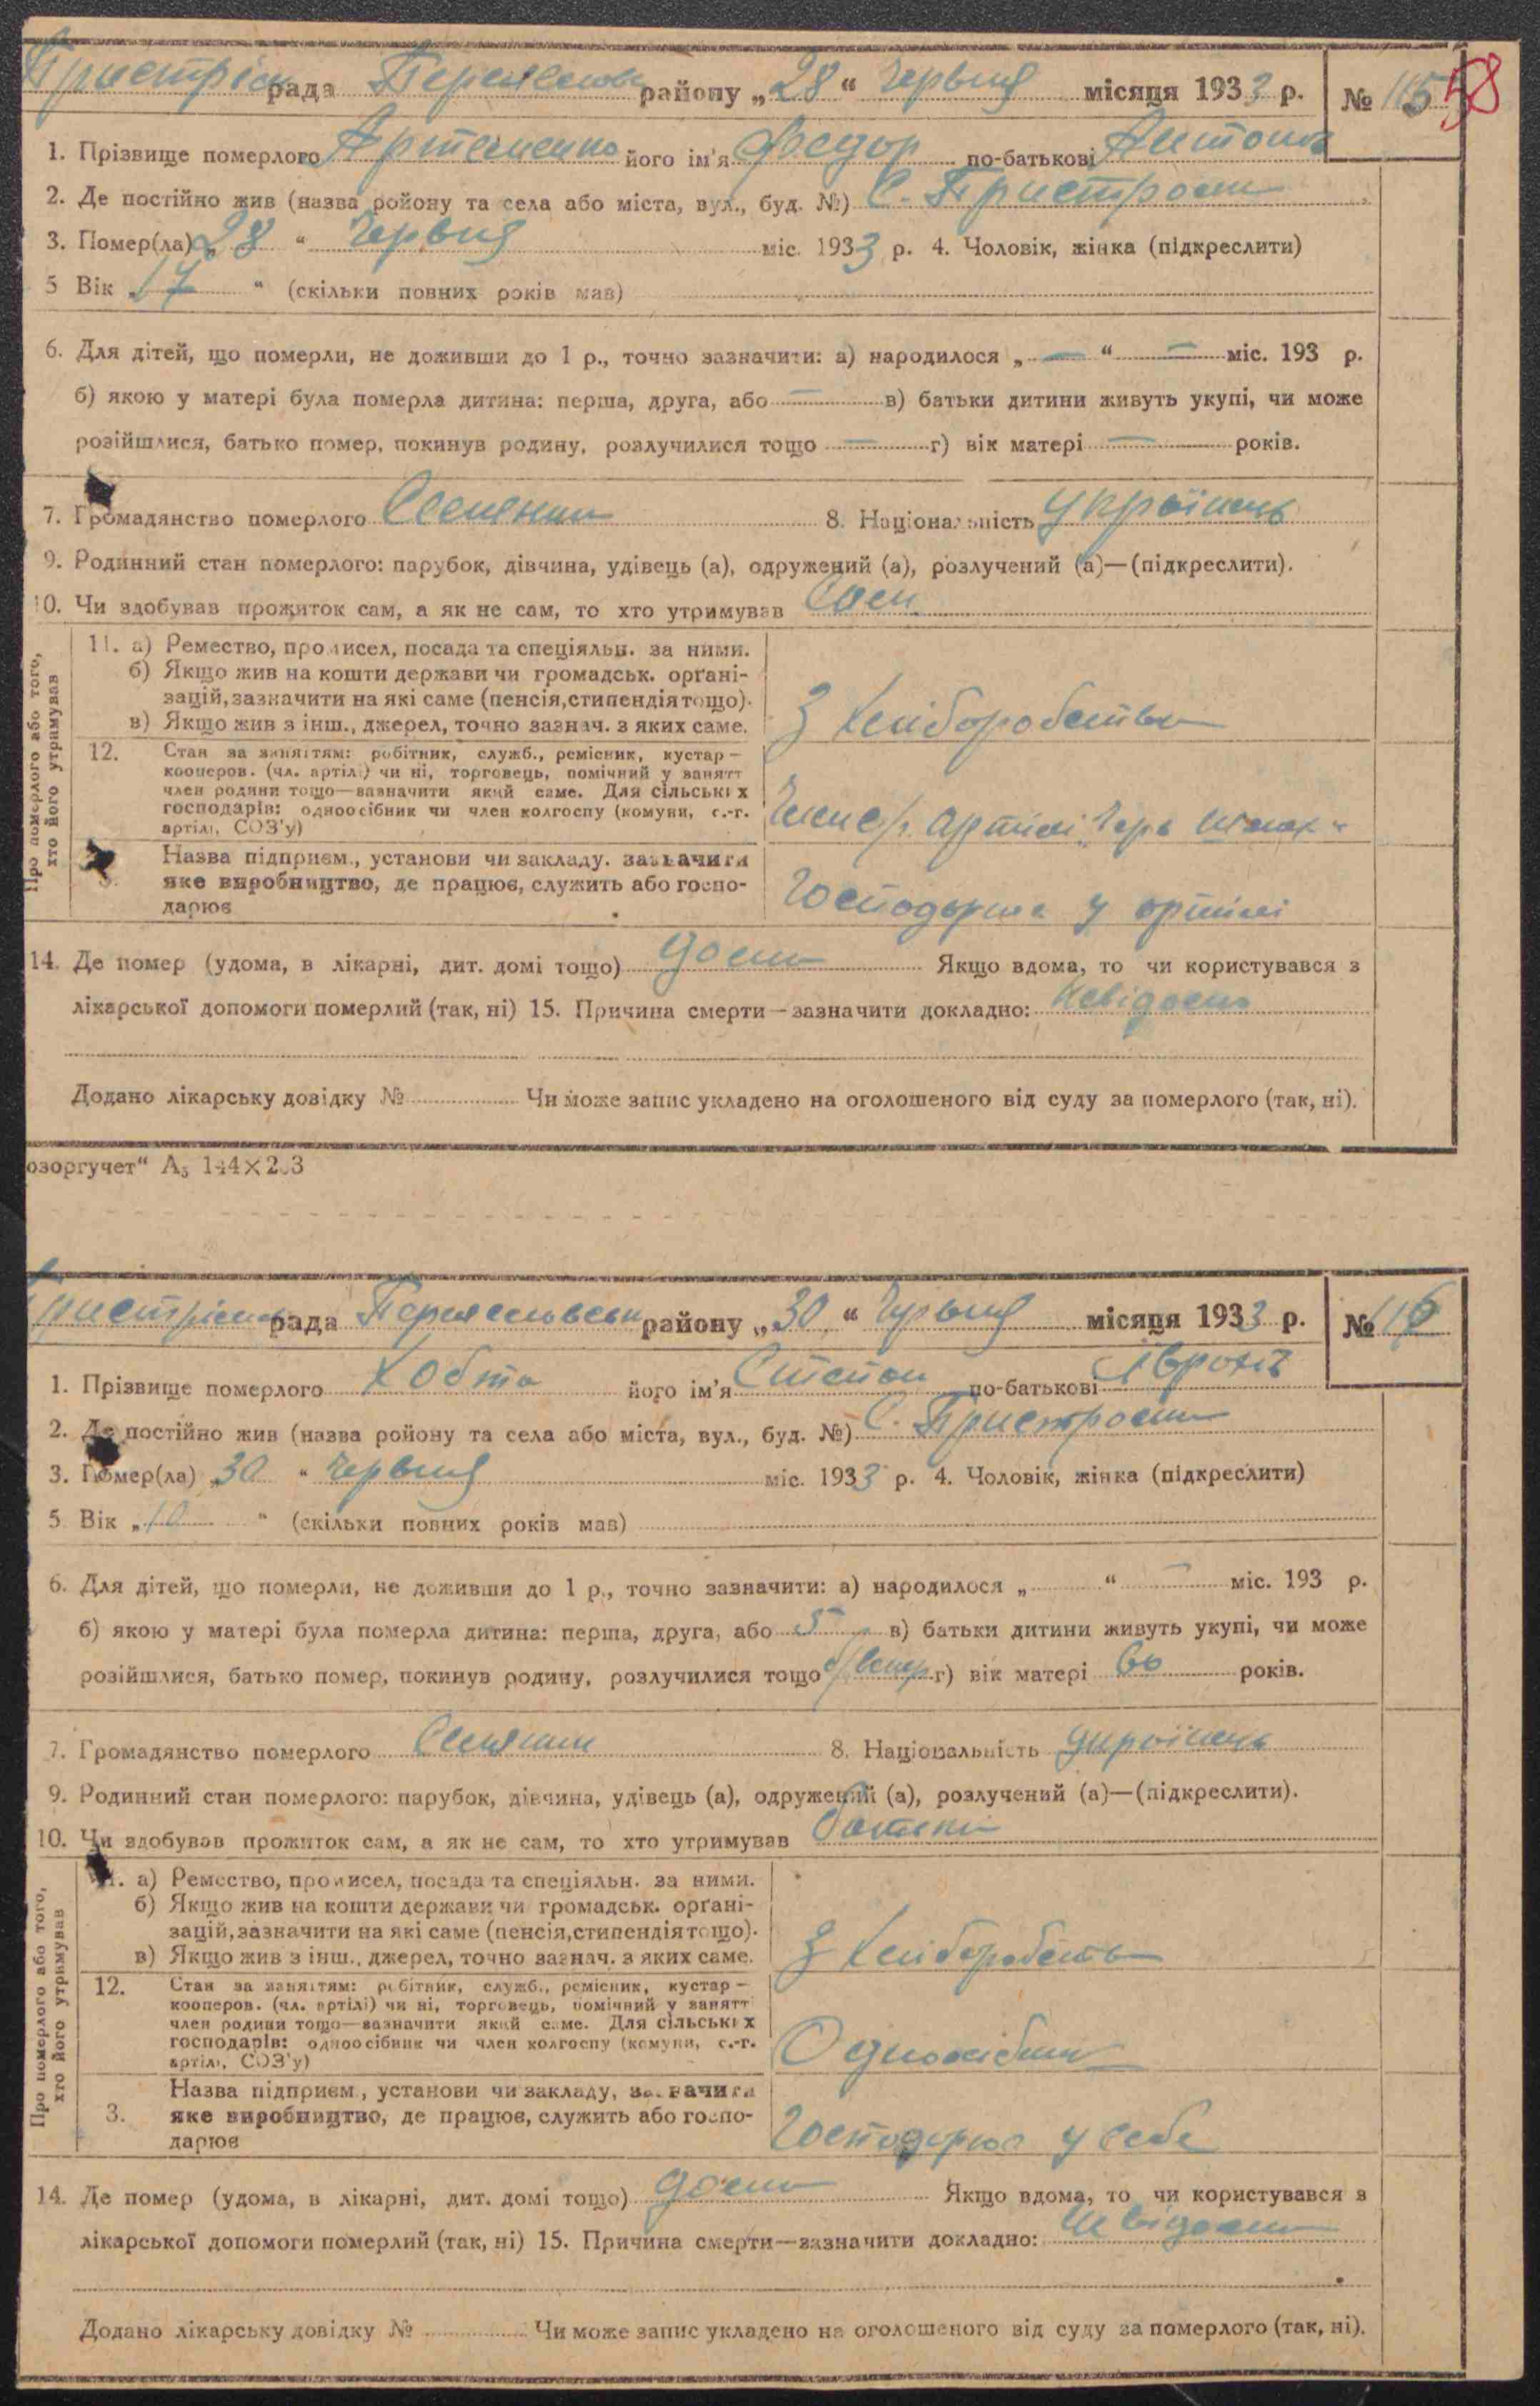 рада району „28“ Червня місяця 1933 р. № 115 58
1. Прізвище померлого Артеменко його ім'я Федор по-батькові Антонів
2. Де постійно жив (назва району та села або міста, вул., буд. №) С. Пристроми
3. Помер(ла) „28“ Червня міс. 1933 р. 4. Чоловік, жінка (підкреслити)
5 Вік „17“ (скільки повних років мав)
6. Для дітей, що померли, не доживши до 1 р., точно зазначити: а) народилося „—“ — міс. 193 р.
б) якою у матері була померла дитина: перша, друга, або — в) батьки дитини живуть укупі, чи може
розійшлися, батько помер, покинув родину, розлучилися тощо — г) вік матері — років.
7. Громадянство померлого 8. Національність Українець
9. Родинний стан померлого: парубок, дівчина, удівець (а), одружений (а), розлучений (а)—(підкреслити).
10. Чи здобував прожиток сам, а як не сам, то хто утримував Сам
Про померлого або того, хто його утримував
11. а) Ремество, промисел, посада та спеціяльн. за ними.
б) Якщо жив на кошти держави чи громадськ. орґані-
зацій, зазначити на які саме (пенсія, стипендія тощо).
в) Якщо жив з інш., джерел, точно зазнач. з яких саме.
З Хліборобства
12. Стан за заняттям: робітник, служб., ремісник, кустар—
кооперов. (чл. артілі) чи ні, торговець, помічний у занятт
член родини тощо—зазначити який саме. Для сільських
господарів: одноосібник чи член колгоспу (комуни, с.-г.
артілі, СОЗ'у)
Член с/г. артілі
3. Назва підприєм., установи чи закладу. зазначити
яке виробництво, де працює, служить або госпо-
дарює
Господарює у артілі
14. Де помер (удома, в лікарні, дит. домі тощо) дома Якщо вдома, то чи користувався з
лікарської допомоги померлий (так, ні) 15. Причина смерти—зазначити докладно: невідома
Додано лікарську довідку № Чи може запис укладено на оголошеного від суду за померлого (так, ні).
озоргучет“ А5 144×203
рада району „30“ Червня місяця 1933 р. № 116
1. Прізвище померлого Хобта його ім'я Степан по-батькові
2. Де постійно жив (назва району та села або міста, вул., буд. №) С. Пристроми
3. Помер(ла) „30“ Червня міс. 1933 р. 4. Чоловік, жінка (підкреслити)
5 Вік „10“ (скільки повних років мав)
6. Для дітей, що померли, не доживши до 1 р., точно зазначити: а) народилося „ “ — міс. 193 р.
б) якою у матері була померла дитина: перша, друга, або 5 в) батьки дитини живуть укупі, чи може
розійшлися, батько помер, покинув родину, розлучилися тощо г) вік матері років.
7. Громадянство померлого 8. Національність Українець
9. Родинний стан померлого: парубок, дівчина, удівець (а), одружений (а), розлучений (а)—(підкреслити).
10. Чи здобував прожиток сам, а як не сам, то хто утримував батьки
Про померлого або того, хто його утримував
11. а) Ремество, промисел, посада та спеціяльн. за ними.
б) Якщо жив на кошти держави чи громадськ. орґані-
зацій, зазначити на які саме (пенсія, стипендія тощо).
в) Якщо жив з інш., джерел, точно зазнач. з яких саме.
З Хліборобства
12. Стан за заняттям: робітник, служб., ремісник, кустар—
кооперов. (чл. артілі) чи ні, торговець, помічний у занятт
член родини тощо—зазначити який саме. Для сільських
господарів: одноосібник чи член колгоспу (комуни, с.-г.
артілі, СОЗ'у)
Одноосібник
3. Назва підприєм., установи чи закладу, зазначити
яке виробництво, де працює, служить або госпо-
дарює
Господарює у себе
14. Де помер (удома, в лікарні, дит. домі тощо) дома Якщо вдома, то чи користувався з
лікарської допомоги померлий (так, ні) 15. Причина смерти—зазначити докладно: невідома
Додано лікарську довідку № Чи може запис укладено на оголошеного від суду за померлого (так, ні).